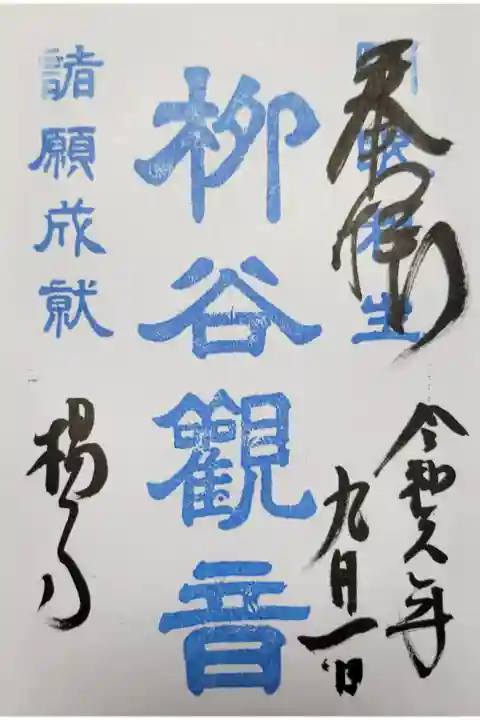 奉拝
令和元年
九月一日
柳谷觀音
諸願成就
楊谷寺